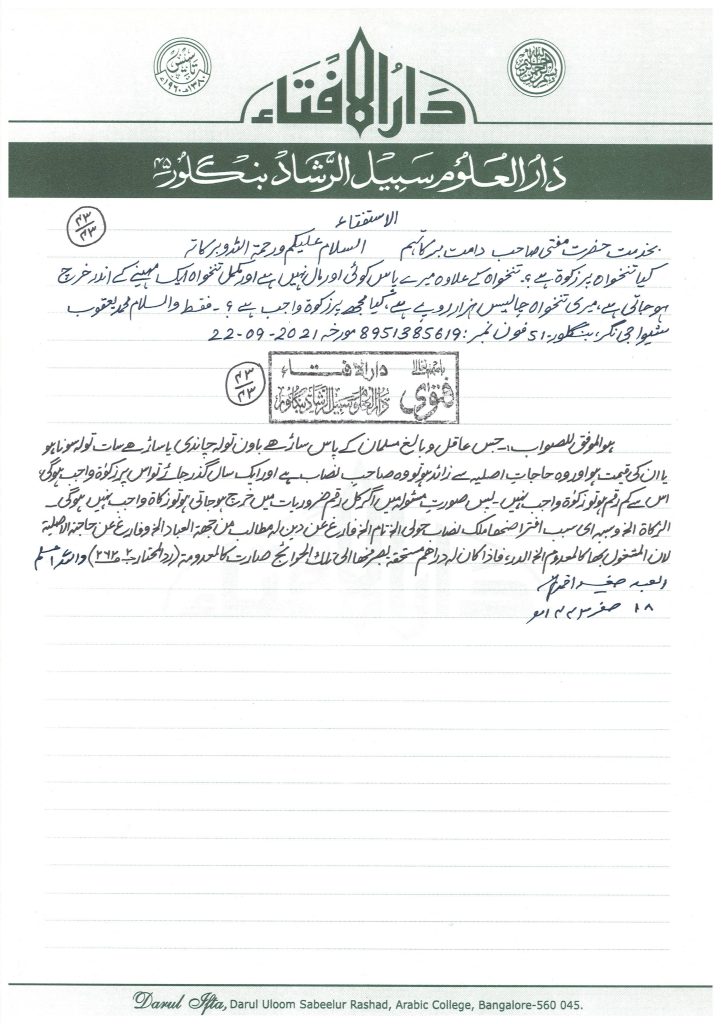 تاسیس
۱۳۸۰ھ ۱۹۶۰ء
بسم اللہ الرحمن الرحیم
دَارُالاِفتَاء
دَارُ العلُوم سَبیلُ الرَّشاد بنگلور ۴۵
۴۳/۴۳
الاستفتاء
بخدمت حضرت مفتی صاحب دامت برکاتہم السلام علیکم ورحمۃ اللہ وبرکاتہ
کیا تنخواہ پر زکوۃ ہے؟۔ تنخواہ کے علاوہ میرے پاس کوئی اور مال نہیں ہے اور مکمل تنخواہ ایک مہینے کے اندر خرچ
ہو جاتی ہے، میری تنخواہ چالیس ہزار روپے ہے، کیا مجھ پر زکوۃ واجب ہے؟۔ فقط والسلام محمد یعقوب
شیواجی نگر، بنگلور-51 فون نمبر: 8951385619 مورخہ 22-09-2021
۴۳/۴۳
باسمہ تعالیٰ
دارالافتاء
فتویٰ
دارالعلوم سبیل الرشاد بنگلور
ہو الموفق للصواب:- جس عاقل و بالغ مسلمان کے پاس ساڑھے باون تولہ چاندی یا ساڑھے سات تولہ سونا ہو
یا ان کی قیمت ہو اور وہ حاجات اصلیہ سے زائد ہو تو وہ صاحب نصاب ہے اور ایک سال گذر جائے تو اس پر زکوۃ واجب ہوگی،
اس سے کم رقم ہو تو زکوۃ واجب نہیں۔ پس صورت مسئولہ میں اگر کل رقم ضروریات میں خرچ ہو جاتی ہو تو زکاۃ واجب نہیں ہوگی۔
الزکاۃ الخ وسببہ ای سبب افتراضھا ملک نصاب حولی الخ تام الخ فارغ عن دین لہ مطالب من جھۃ العباد الخ وفارغ عن حاجتہ الاصلیۃ
لان المشغول بھا کالمعدوم الخ فاذا کان لہ دراھم مستحقۃ بصرفھا الی تلک الحوائج صارت کالمعدومۃ (رد المحتار ۲ ۲۶۲) واللہ اعلم
العبد صغیر احمد
۱۸ صفر ۱۴۴۳ھ
Darul Ifta, Darul Uloom Sabeelur Rashad, Arabic College, Bangalore-560 045.